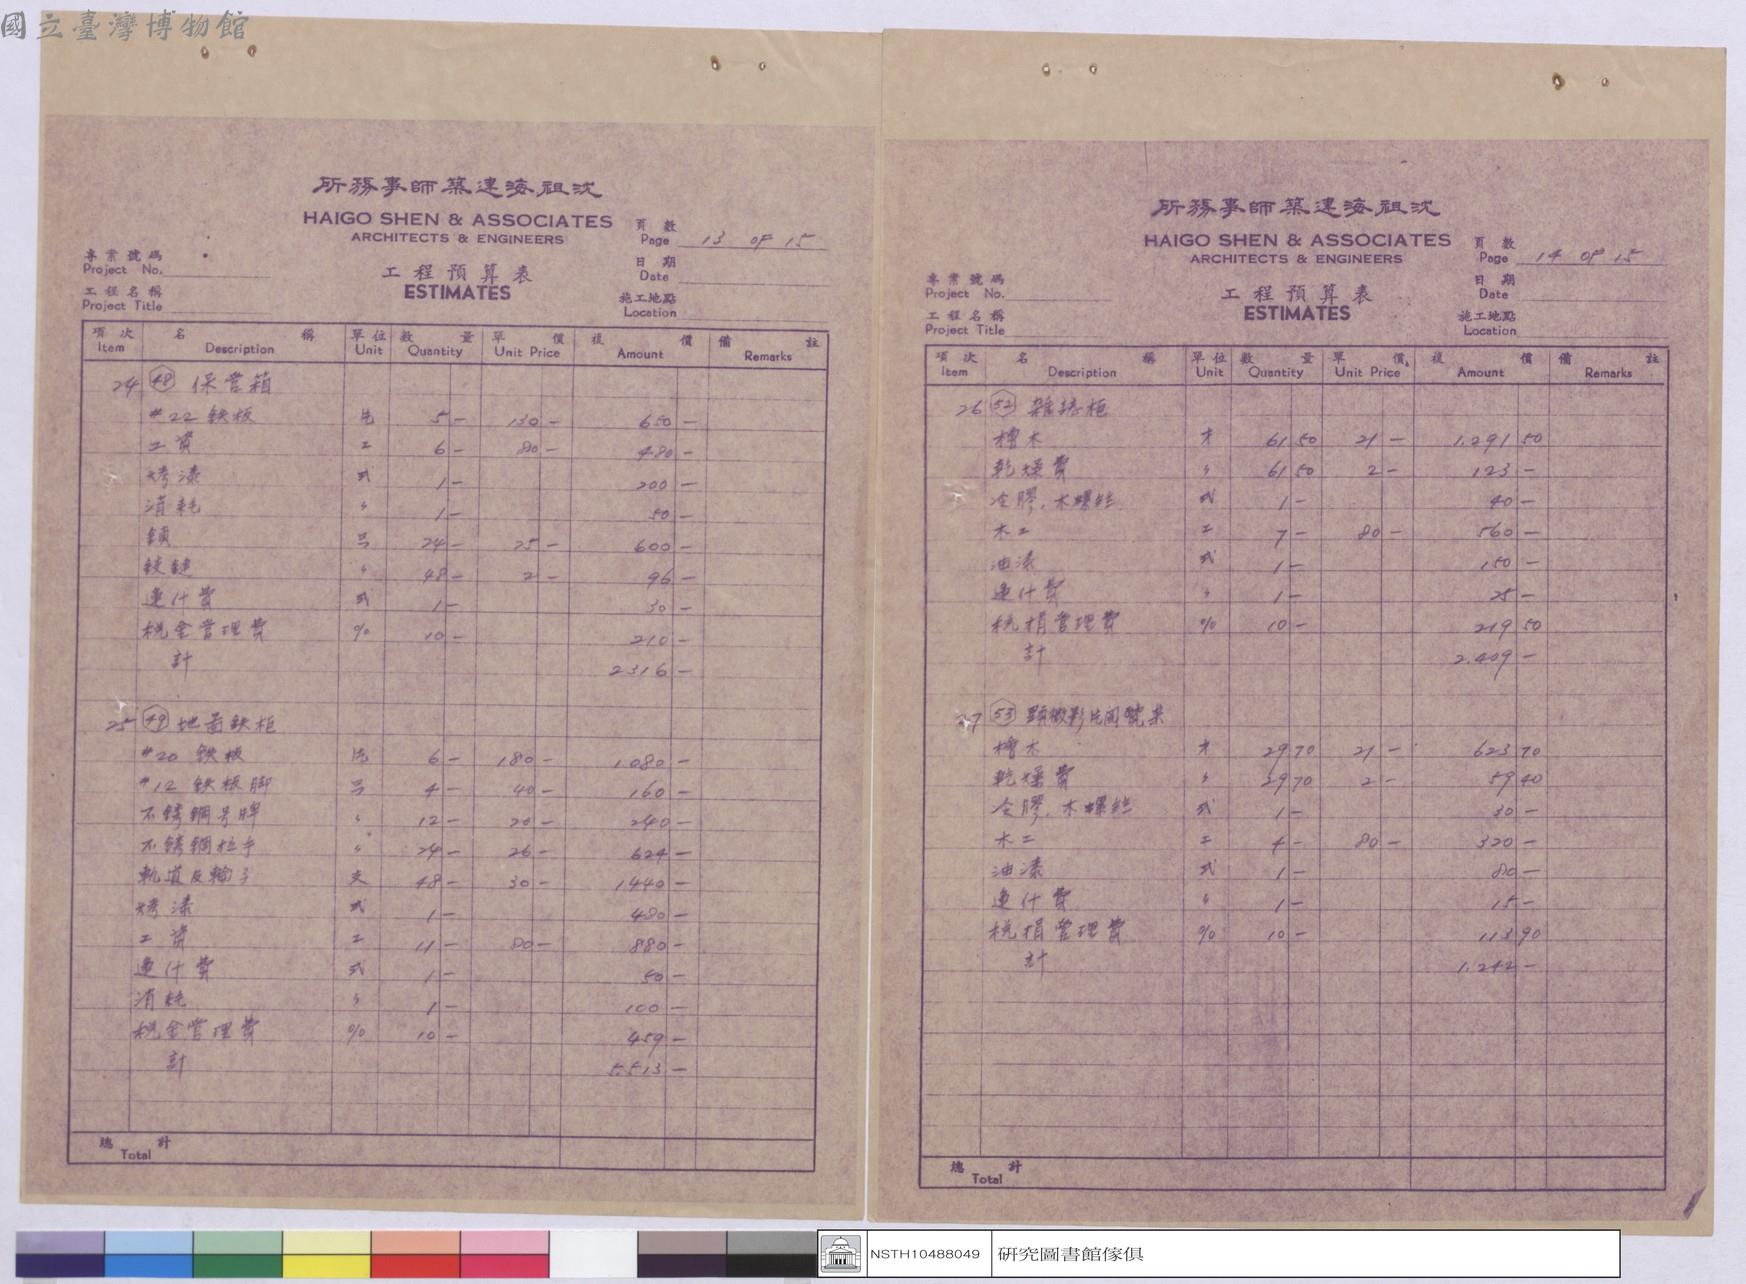 國立臺灣博物館
所務事師築建海祖沈
HAIGO SHEN & ASSOCIATES
ARCHITECTS & ENGINEERS
頁數 Page 13 OF 15
專業號碼 Project No.
日期 Date
工程預算表
ESTIMATES
工程名稱 Project Title
施工地點 Location
項次 Item 名稱 Description 單位 Unit 數量 Quantity 單價 Unit Price 複價 Amount 備註 Remarks
24 48 保管箱
#22 鉄板 5- 130- 650-
工資 工 6- 80- 480-
烤漆 式 1- 200-
消耗 〃 1- 50-
鎖 24- 25- 600-
鉸鏈 〃 48- 2- 96-
運什費 式 1- 30-
稅金管理費 % 10- 210-
計 2316-
25 49 地圖鉄柜
#20 鉄板 6- 180- 1.080-
#12 鉄板脚 4- 40- 160-
不銹鋼号牌 〃 12- 20- 240-
不銹鋼拉手 〃 24- 26- 624-
軌道及輪子 支 48- 30- 1440-
烤漆 式 1- 480-
工資 工 11- 80- 880-
運什費 式 1- 50-
消耗 〃 1- 100-
稅金管理費 % 10- 459-
計 5.513-
總計 Total
所務事師築建海祖沈
HAIGO SHEN & ASSOCIATES
ARCHITECTS & ENGINEERS
頁數 Page 14 OF 15
專業號碼 Project No.
日期 Date
工程預算表
ESTIMATES
工程名稱 Project Title
施工地點 Location
項次 Item 名稱 Description 單位 Unit 數量 Quantity 單價 Unit Price 複價 Amount 備註 Remarks
26 52 雜誌柜
檜木 才 61 50 21- 1.291 50
乾燥費 〃 61 50 2- 123-
冷膠.木螺絲 式 1- 40-
木工 工 7- 80- 560-
油漆 式 1- 150-
運什費 〃 1- 25-
稅捐管理費 % 10- 219 50
計 2.409-
27 53 顯微影片閱覽桌
檜木 才 29 70 21- 623 70
乾燥費 〃 29 70 2- 59 40
冷膠.木螺絲 式 1- 30-
木工 工 4- 80- 320-
油漆 式 1- 80-
運什費 〃 1- 15-
稅捐管理費 % 10- 113 90
計 1.242-
總計 Total
NSTH10488049 研究圖書館傢俱